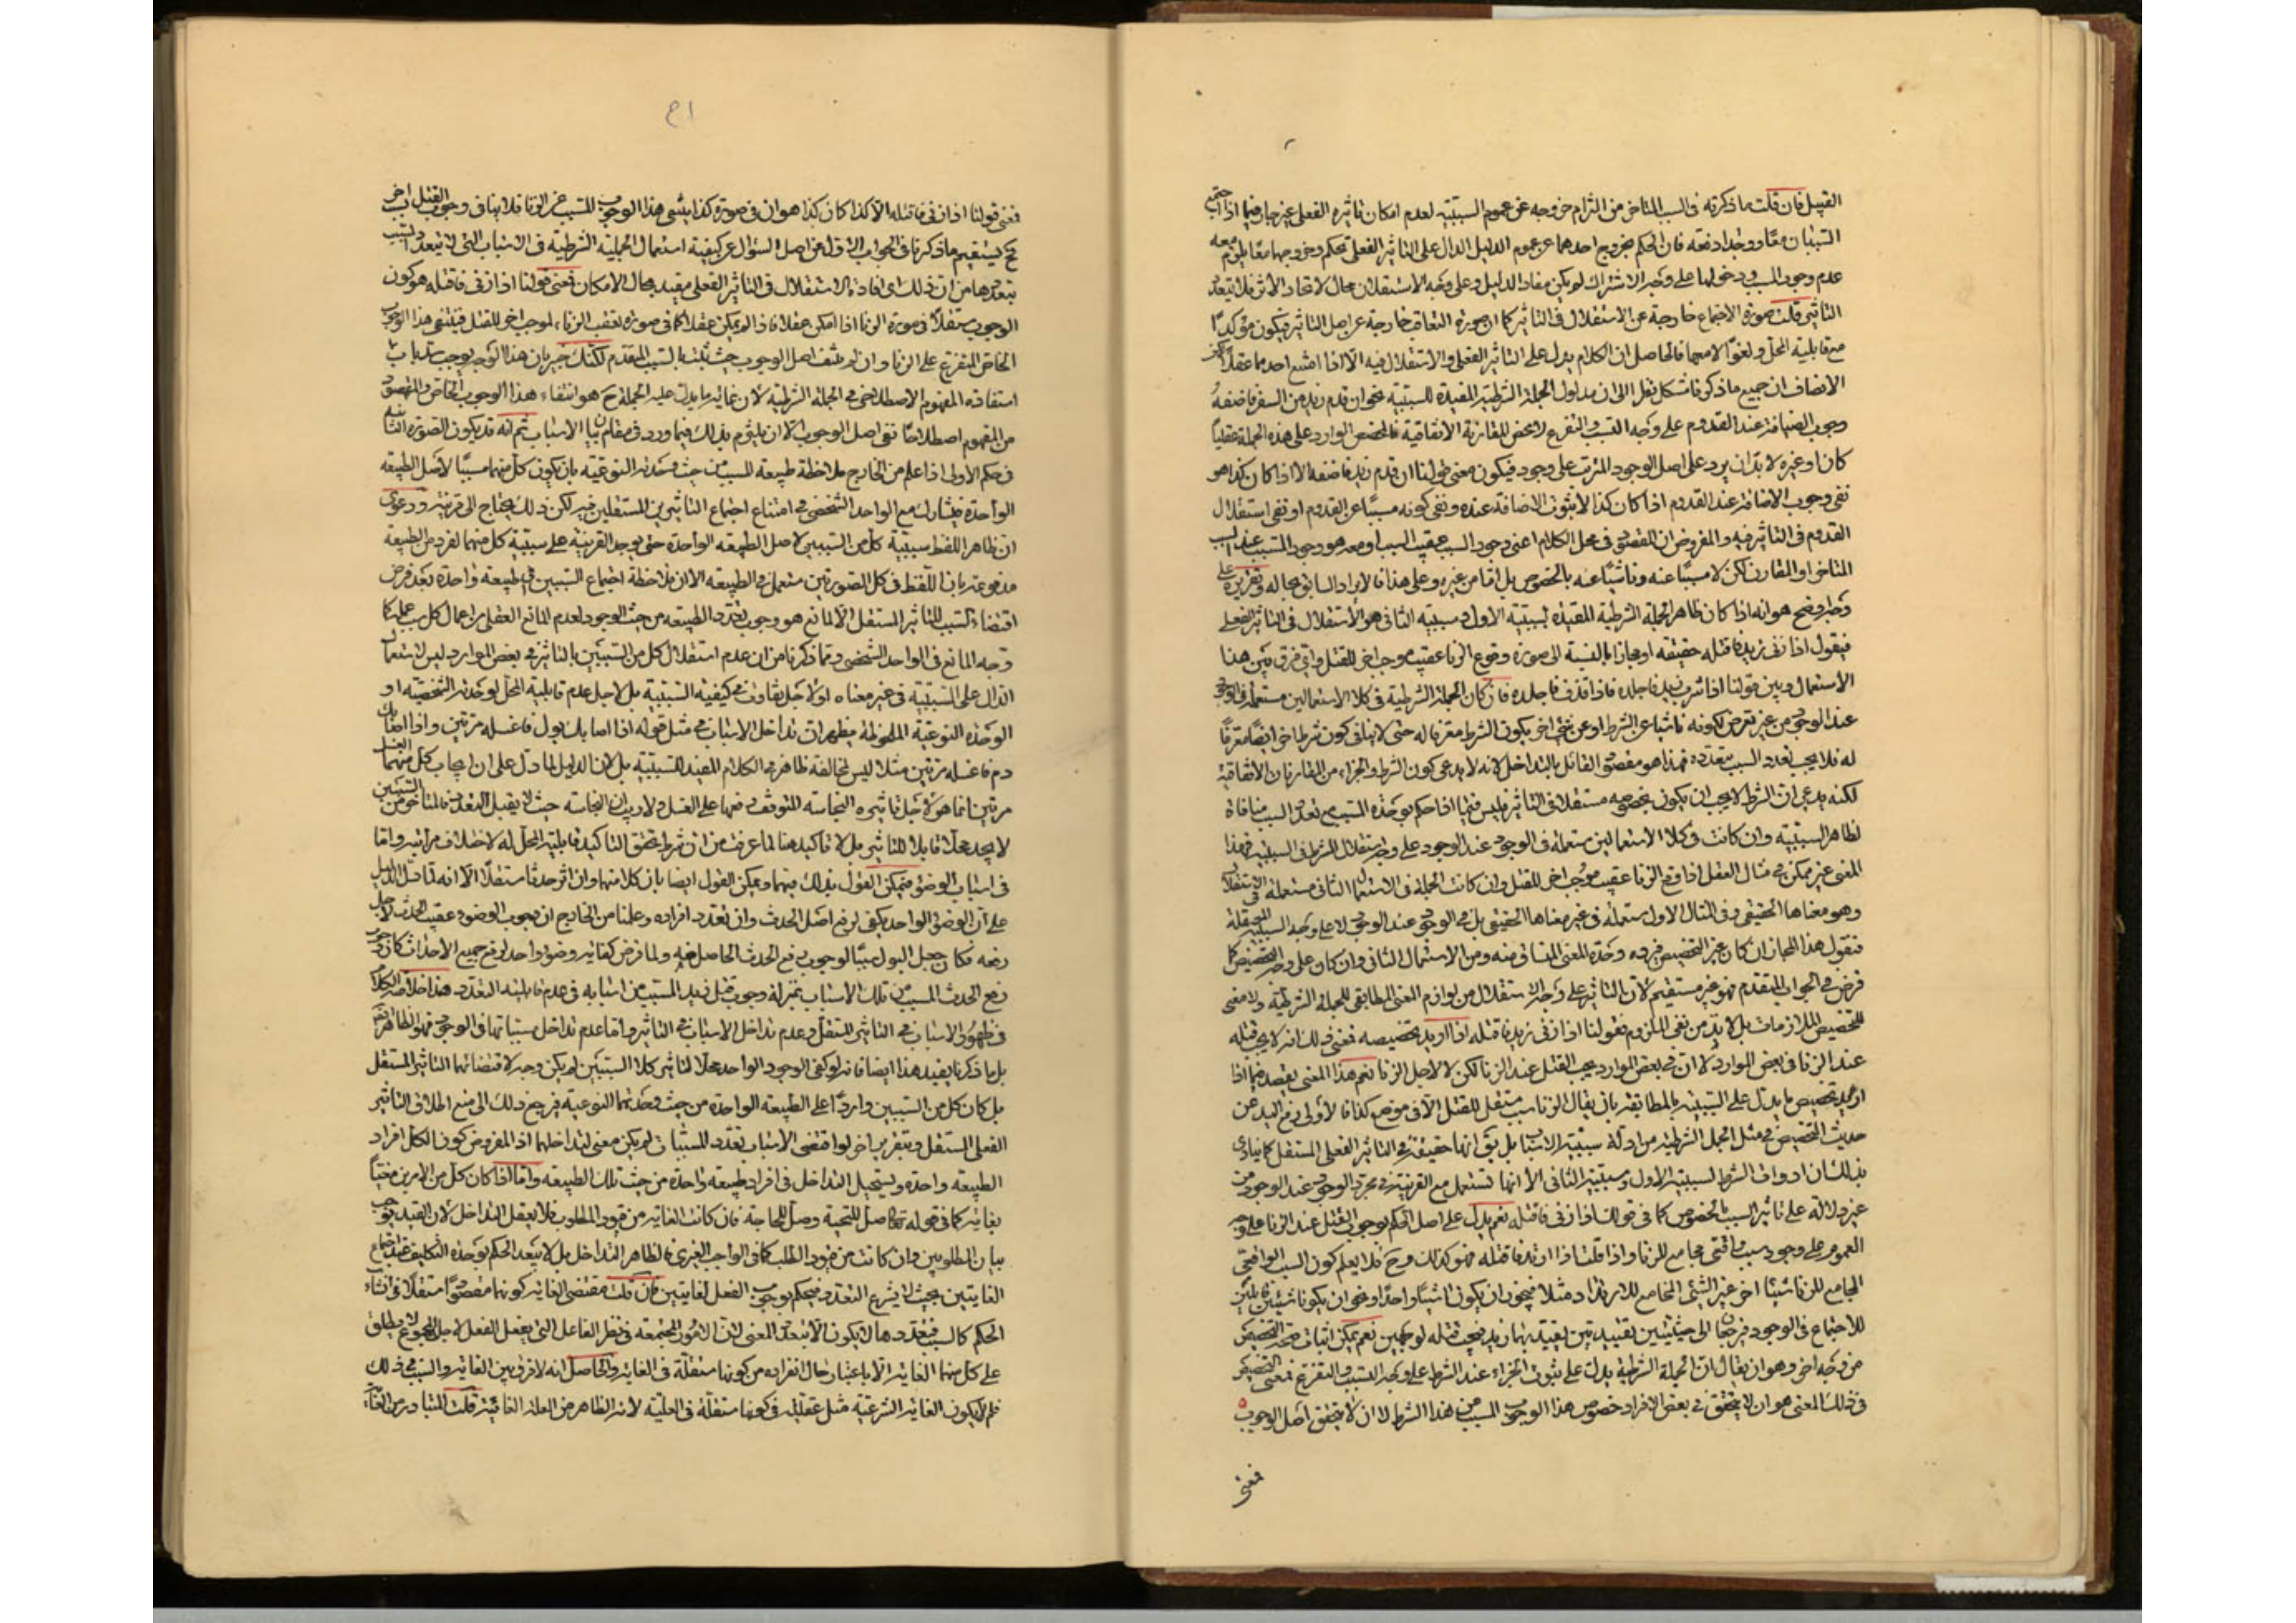 القبيل فان قلت ما ذكرته فى السبب المتاخر من التزام خروجه عن عموم السببية لعدم امكان تاثيره الفعلى غير جار فيما اذا اجتمع
السببان معًا ووجدا دفعة فان الحكم بخروج احدهما عن عموم الدليل الدال على التاثير الفعلى تحكم وخروجهما معًا يلزم معه
عدم وجود المسبب ودخولهما على وجه الاشتراك لم يكن مفاد الدليل وعلى وجه الاستقلال محال لاتحاد الاثر فلا يتعدد
التاثير قلت صورة الاجتماع خارجة عن الاستقلال فى التاثير كما ان صورة التعاقب خارجة عن اصل التاثير فيكون مؤكدًا
مع قابلية المحل ولغوًا لا معها فالحاصل ان الكلام يدل على التاثير الفعلى والاستقلال فيه الا اذا امتنع احدهما عقلًا لكن
الانصاف ان جميع ما ذكرنا مشكل نظرا الى ان مدلول الجملة الشرطية المفيدة للسببية نحو ان قدم زيد من السفر فاضفه
وجوب الضيافة عند القدوم على وجه التسبب والتفرع لا محض المقارنة الاتفاقية فالمخصص الوارد على هذه الجملة عقليًا
كان او غيره لا بد ان يرد على اصل الوجود المترتب على وجود فيكون معنى قولنا ان قدم زيد فاضفه الا اذا كان كذا هو
نفى وجوب الاضافة عند القدوم اذا كان كذا لا ثبوت الاضافة عنده ونفى كونه مسببًا عن القدوم او نفى استقلال
القدوم فى التاثير فيه والمفروض ان المقصود فى محل الكلام اعنى وجود السبب عقيب السبب او معه هو وجود المسبب عند السبب
المتاخر او المقارن لكن لا مسببًا عنه وناشئًا عنه بالخصوص بل اما من غيره وعلى هذا فالايراد السابق بحاله وتقريره على
وجه وضح هو انه اذا كان ظاهر الجملة الشرطية المفيدة لسببية الاول ومسببية الثانى هو الاستقلال فى التاثير الفعلى
فيقول اذا زنى زيد فاقتله حقيقة او مجازا بالنسبة الى صورة وقوع الزنا عقيب موجب اخر للقتل واى فرق بين هنا
الاستعمال وبين قولنا اذا شرب زيد فاجلده فاذا قذف فاجلده فان كان الجملة الشرطية فى كلا الاستعمالين مستعملة فى الوجود
عند الوجود من غير تعرض لكونه ناشئا عن الشرط او عن شئ اخر يكون الشرط معرفا له حتى لا ينافى كون شرط اخر ايضًا معرفًا
له فلا يجب تعدد المسبب بتعدده فهذا هو مقصود القائل بالتداخل لانه لا يدعى كون الشرط والجزاء من المقارنات الاتفاقية
لكنه يدعى ان الشرط لا يجب ان يكون بخصوصه مستقلا فى التاثير فليس فيما اذا حكم بوحدة المسبب مع تعدد السبب منافاة
لظاهر السببية وان كانت فى كلا الاستعمالين مستعملة فى الوجود عند الوجود على وجه استقلال الشرط فى السببية فهذا
المعنى غير ممكن فى مثال القتل اذا وقع الزنا عقيب موجب اخر للقتل وان كانت الجملة فى الاستعمال الثانى مستعملة فى الاستقلال
وهو معناها الحقيقى وفى المثال الاول مستعملة فى غير معناها الحقيقى بل فى الوجود عند الوجود لا على وجه السببية المستقلة
فنقول هذا المجاز ان كان غير التخصيص فيرده وحدة المعنى المنساق منه ومن الاستعمال الثانى وان كان على وجه التخصيص كما
فرض فى الجواب المتقدم فهو غير مستقيم لان التاثير على وجه الاستقلال من لوازم المعنى المطابقى للجملة الشرطية ولا معنى
لتخصيص الملازمات بل لا بد من نفى الملزوم فقولنا اذا زنى زيد فاقتله اذا اريد تخصيصه فمعنى ذلك انه لا يجب قتله
عند الزنا فى بعض الموارد لا ان فى بعض الموارد يجب القتل عند الزنا لكن لا لاجل الزنا نعم هذا المعنى يقصد فيما اذا
اريد تخصيص ما يدل على السببية بالمطابقة بان يقال الزنا سبب مستقل للقتل الا فى موضع كذا فالاولى رفع اليد عن
حديث التخصيص فى مثل الجمل الشرطية من ادلة سببية الاسباب بل يق انها حقيقة فى التاثير الفعلى المستقل كما ينادى
بذلك ان ادوات الشرط لسببية الاول ومسببية الثانى الا انها تستعمل مع القرينة فى مجرد الوجود عند الوجود من
غير دلالة على تاثير السبب بالخصوص كما فى قولك اذا زنى فاقتله نعم يدل على اصل الحكم بوجوب القتل عند الزنا على وجه
العموم على وجود سبب واقعى مجامع للزنا واذا قلت اذا ارتد فاقتله فهو كذلك وح فلا يعلم كون السبب الواقعى
المجامع للزنا شيئا اخر غير الشئ المجامع للارتداد مثلا فيجوز ان يكون شيئًا واحدًا ويجوز ان يكونا شيئين قابلين
للاجتماع فى الوجود فيرجعان الى حيثيتين تقييديتين يقيد بهما زيد فيجب قتله لوجهين نعم يمكن اثبات صحة التخصيص
من وجه اخر وهو ان يقال ان الجملة الشرطية يدل على ثبوت الجزاء عند الشرط على وجه التسبب والتفرع فمعنى التخصيص
فى ذلك المعنى هو ان لا يتحقق فى بعض الافراد خصوص هذا الوجوب المسبب من هذا الشرط لا ان لا يتحقق اصل الوجوب
فمعنى
٤١
فمعنى قولنا اذا زنى فاقتله الا كذا كان كذا هو ان فى صورة كذا ينتفى هذا الوجوب المسبب عن الزنا فلا ينافى وجوب القتل بسبب اخر
فح يستقيم ما ذكرنا فى الجواب الاول عن اصل السؤال عن كيفية استعمال الجملة الشرطية فى الاسباب التى لا يتعدد المسبب
بتعددها من ان ذلك اى افادة الاستقلال فى التاثير الفعلى مقيد بحال الامكان فمعنى قولنا اذا زنى فاقتله هو كون
الوجوب مستقلًا فى صورة الزنا اذا امكن عقلا فاذا لم يمكن عقلا كما فى صورة تعقب الزناء لموجب اخر للقتل فينتفى هذا الوجوب
الخاص المتفرع على الزنا وان لم ينتف اصل الوجوب حيث ثبت بالسبب المقدم لكنك خبير بان هذا الوجه يوجب سد باب
استفادة المفهوم الاصطلاحى فى الجملة الشرطية لان غاية ما يدل عليه الجملة ح هو انتفاء هذا الوجوب الخاص والمقصود
من المفهوم اصطلاحًا نفى اصل الوجوب الا ان يلتزم بذلك فيما ورد فى مقام بيان الاسباب ثم انه قد يكون الصورة الثانية
فى حكم الاولى اذا علم من الخارج ملاحظة طبيعة المسبب من حيث وحدته النوعية بان يكون كل منهما مسببًا لاصل الطبيعة
الواحدة فيشارك مع الواحد الشخصى فى امتناع اجتماع التاثيرين المستقلين فيه لكن ذلك يحتاج الى قرينة ودعوى
ان ظاهر اللفظ سببية كل من السببين لاصل الطبيعة الواحدة حتى يوجد القرينة على سببية كل منهما لفرد من الطبيعة
مدفوعة بان اللفظ فى كل الصورتين مستعمل فى الطبيعة الا ان ملاحظة اجتماع السببين فى طبيعة واحدة بعد فرض
اقتضاء السبب للتاثير المستقل الا لمانع هو وجوب تعدد الطبيعة من حيث الوجود لعدم المانع العقلى من اعمال كل سبب عمله كما
وجه المانع فى الواحد الشخصى ومما ذكرنا من ان عدم استقلال كل من السببين بالتاثير فى بعض الموارد ليس لاستعمال
الدال على السببية فى غير معناه او لاجل تفاوت فى كيفية السببية بل لاجل عدم قابلية المحل لوحدته الشخصية او
الوحدة النوعية الملحوظة يظهر ان تداخل الاسباب فى مثل قوله اذا اصابك بول فاغسله مرتين واذا اصابك
دم فاغسله مرتين مثلا ليس لمخالفة ظاهر فى الكلام المفيد للسببية بل لان الدليل لما دل على ان ايجاب كل منهما الغسل
مرتين انما هو لاجل تاثيره النجاسة المتوقف رفعها على الغسل ولا ريب ان النجاسة حيث لا يقبل التعدد فالمتاخر من السببين
لا يجد محلا قابلا للتاثير بل لا تاكيد هنا لما عرفت من ان شرط تحقق التاكيد قابلية المحل له لاختلاف مراتبه واما
فى اسباب الوضوء فيمكن القول بذلك فيها ويمكن القول ايضا بان كلا منها وان اثر حدثا مستقلًا الا انه لما دل الدليل
على ان الوضوء الواحد يكفى لرفع اصل الحدث وان تعدد افراده وعلمنا من الخارج ان وجوب الوضوء عقيب الحدث لاجل
رفعه فكان جعل البول سببًا لوجوب رفع الحدث الحاصل منه ولما فرض كفاية وضوء واحد لرفع جميع الاحداث كان وجوب
رفع الحدث المسبب من تلك الاسباب بمنزلة وجوب قتل زيد المسبب من اسبابه فى عدم قابليته التعدد هذا خلاصة الكلام
فى ظهور الاسباب فى التاثير المستقل وعدم تداخل الاسباب فى التاثير واما عدم تداخل مسبباتها فى الوجود فهو الظاهر
بل ما ذكرنا يفيد هذا ايضا فانه لو كفى الوجود الواحد محلا لتاثير كلا السببين لم يكن وجه لاقتضائهما التاثير المستقل
بل كان كل من السببين واردًا على الطبيعة الواحدة من حيث وحدتها النوعية فيرجع ذلك الى منع اطلاق التاثير
الفعلى المستقل وبتقرير اخر لو اقتضى الاسباب تعدد المسببات لم يكن معنى لتداخلها اذ المفروض كون الكل افراد
الطبيعة واحدة ويستحيل التداخل فى افراد طبيعة واحدة من حيث تلك الطبيعة واما اذا كان كل من الامرين مغيًا
بغاية كما فى قوله تع صل للتحية وصل للحاجة فان كانت الغاية من قيود المطلوب فلا يعقل التداخل لان القيد يوجب
تباين المطلوبين وان كانت من قيود الطلب كما فى الواجب الغيرى فالظاهر التداخل بل لا يبعد الحكم بوحدة التكليف عند اجتماع
الغايتين بحيث لا يشرع التعدد فيحكم بوجوب الفعل لغايتين فان قلت مقتضى الغاية كونها مقصودًا مستقلًا فى انشاء
الحكم كالسبب فتعددها لا يكون الا بتعدد المغيى لان الامور المجتمعة فى نظر الفاعل التى يفعل الفعل لاجل المجموع لا يطلق
على كل منها الغاية الا باعتبار حال انفراده من كونها مستقلة فى الغاية والحاصل انه لا فرق بين الغاية والسبب فى ذلك
فلم لا يكون الغاية الشرعية مثل عقلية فى كونها مستقلة فى العلية لانه الظاهر من العلة الغائية قلت المتبادر من الغاية